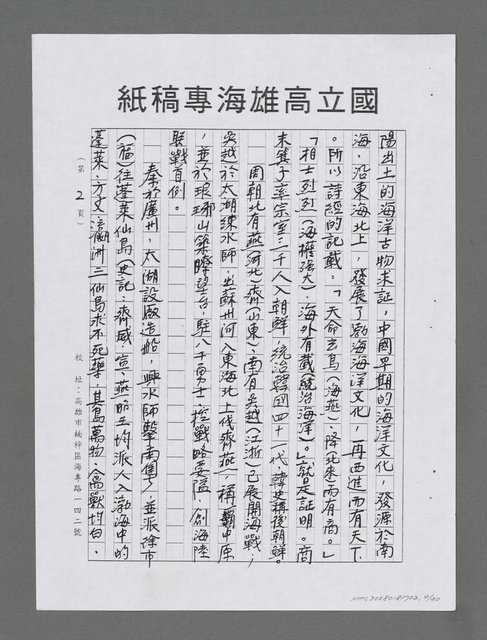 國立高雄海專稿紙
陽出土的海洋古物求証，中國早期的海洋文化，發源於南
海，沿東海北上，發展了渤海海洋文化，再西進而有天下
。所以詩經的記載：「天命玄鳥（海燕）降（北來）而有商。」
「相士烈烈（海權強大）、海外有截（統治海洋）。」就是証明。商
末箕子率宗室三千人入朝鮮，統治韓國四十一代，韓史稱後朝鮮。
周朝北有燕（河北）齊（山東）；南有吳越（江浙）已展開海戰；
吳越於太湖練水師，出蘇州河入東海北上伐齊燕，稱霸中原
，並於琅琊山築瞭望台，駐八千勇士，控戰略要隘，創海陸
聯戰首例。
秦於廣州，太湖設廠造船，興水師擊南粵，並派徐市
（福）往蓬萊仙島，史記：齊威、宣、燕昭王均派人入渤海中的
蓬萊、方丈、瀛洲三仙島求不死藥，其島萬物、禽獸均白、
（第 2 頁）
校址：高雄市楠梓區海專路一四二號
NMTL20080181702, 4/40